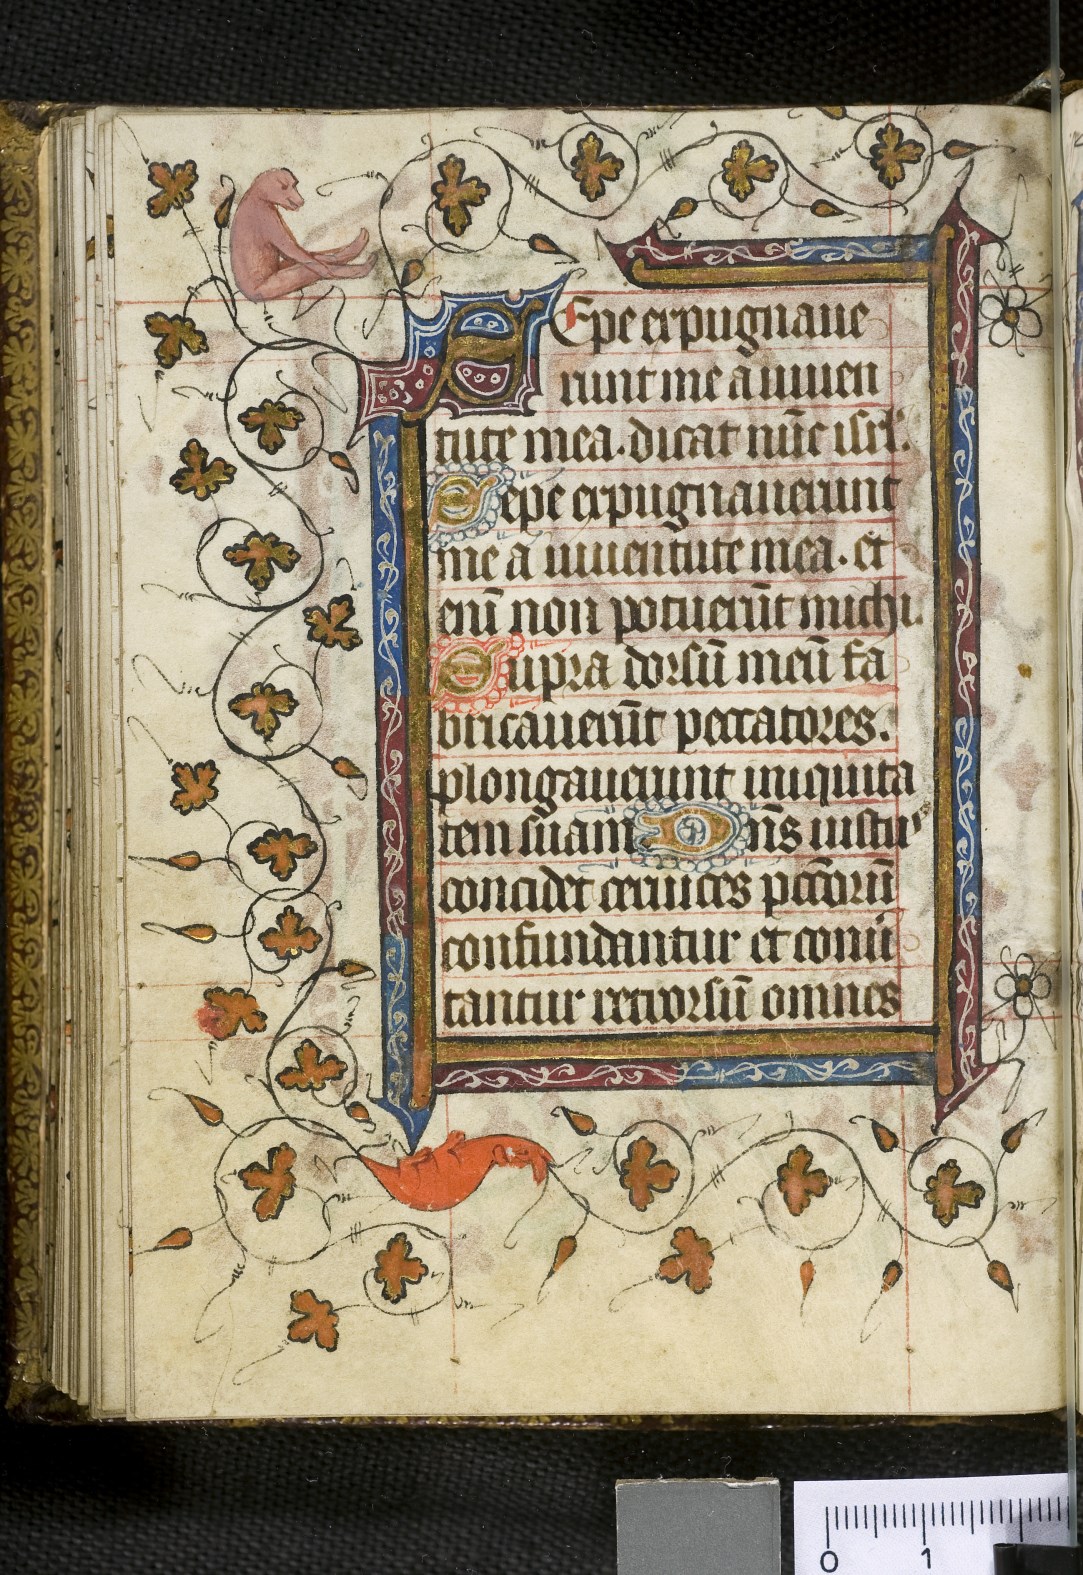 Sepe expugnaue
runt me a iuuen
tute mea. dicat nūc isrl'.
Sepe expugnauerunt
me a iuuentute mea. et
enī non potuerūt michi.
Supra dorsū meū fa
bricauerūt peccatores.
plongauerunt iniquita
tem suam Dn̄s iustus
concidet ceruices pctōrū
confundantur et conū
tantur retrorsū omnes
0 1